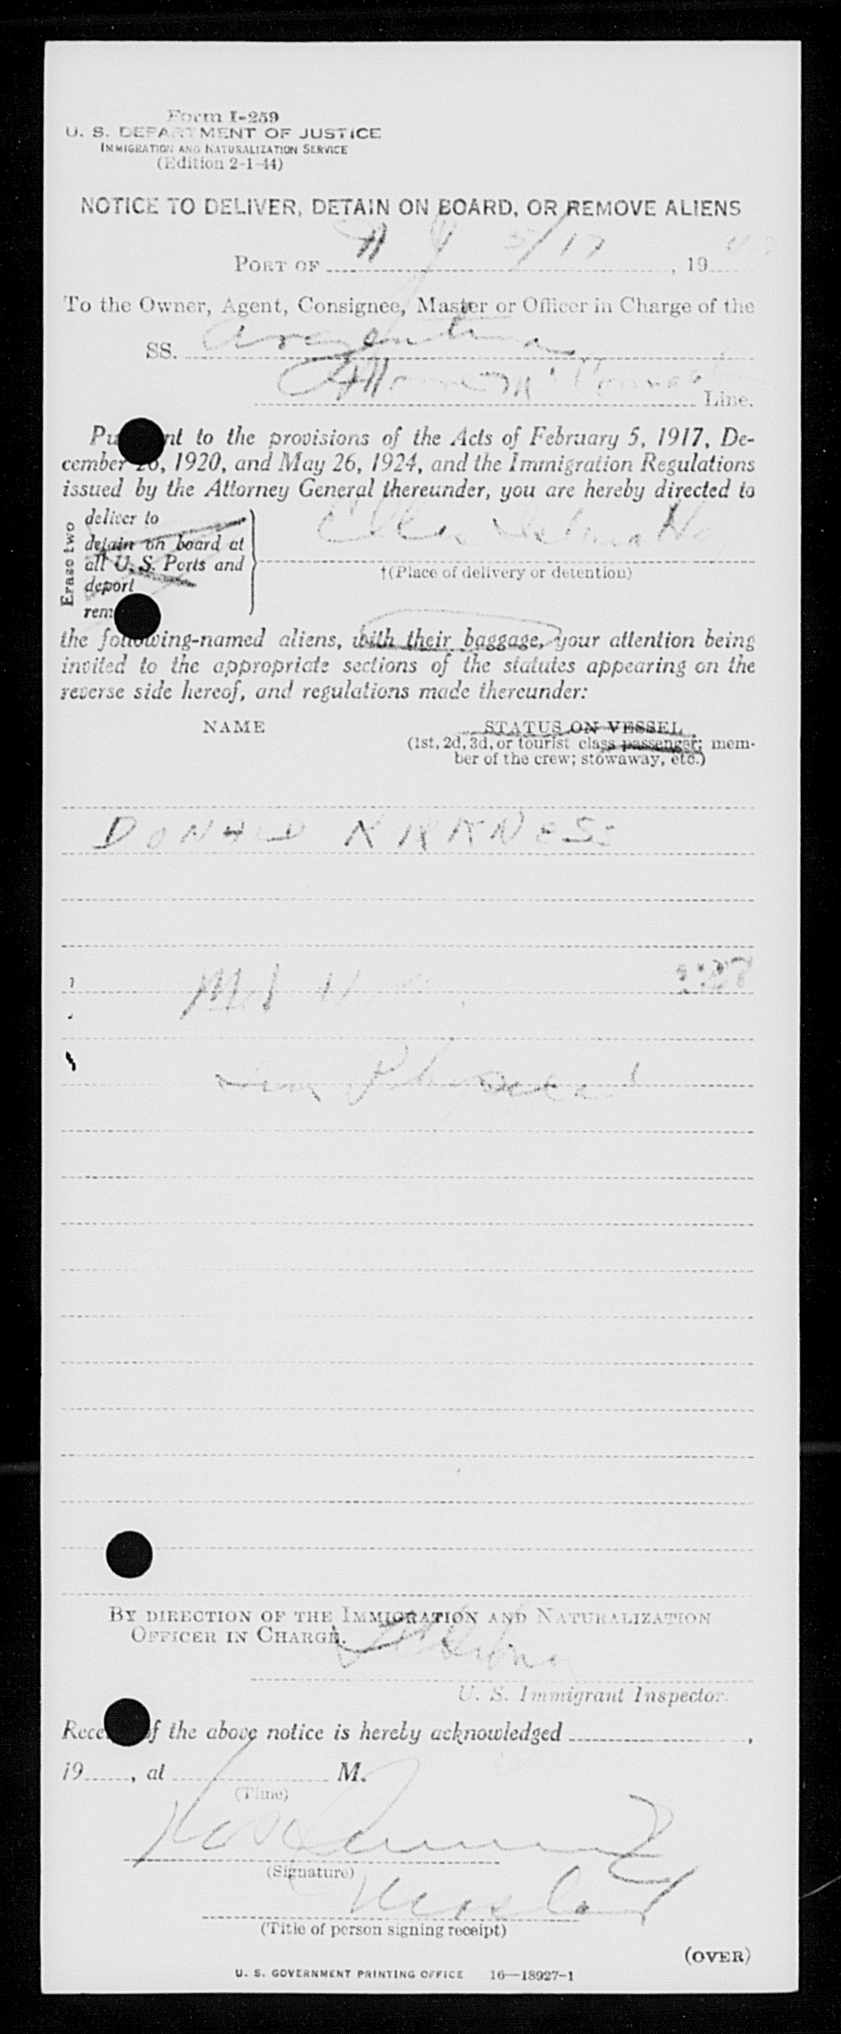 Form I-259
U. S. DEPARTMENT OF JUSTICE
IMMIGRATION AND NATURALIZATION SERVICE
(Edition 2-1-44)
NOTICE TO DELIVER, DETAIN ON BOARD, OR REMOVE ALIENS
PORT OF N Y 5/17, 19
To the Owner, Agent, Consignee, Master or Officer in Charge of the
SS. Argentina
Line.
Pu nt to the provisions of the Acts of February 5, 1917, De-
cember 26, 1920, and May 26, 1924, and the Immigration Regulations
issued by the Attorney General thereunder, you are hereby directed to
Erase two
deliver to
detain on board at
all U. S. Ports and
deport
rem
Ellis Island
†(Place of delivery or detention)
the following-named aliens, with their baggage, your attention being
invited to the appropriate sections of the statutes appearing on the
reverse side hereof, and regulations made thereunder:
NAME STATUS ON VESSEL
(1st, 2d, 3d, or tourist class passenger; mem-
ber of the crew; stowaway, etc.)
DONALD KIRKNESS
BY DIRECTION OF THE IMMIGRATION AND NATURALIZATION
OFFICER IN CHARGE.
U. S. Immigrant Inspector.
Rece f the above notice is hereby acknowledged ,
19 , at M.
(Time)
(Signature)
(Title of person signing receipt)
(OVER)
U. S. GOVERNMENT PRINTING OFFICE 16—18927-1